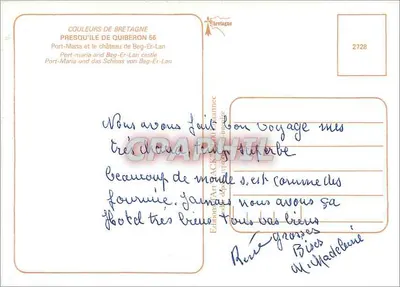 COULEURS DE BRETAGNE
PRESQU'ILE DE QUIBERON 56
Port-Maria et le château de Beg-Er-Lan
Port-maria and Beg-Er-Lan castle
Port-Maria und das Schloss von Beg-Er-Lan
Bretagne
2728
Nous avons fait bon voyage mes
très chaud temp superbe
beaucoup de monde s,est comme des
fourmie. Jamais nous avons ça
Hotel très bien tous va bien
grosses
Bises
René
M. Madeleine
CPAPHIL
Editions d'Art JACK